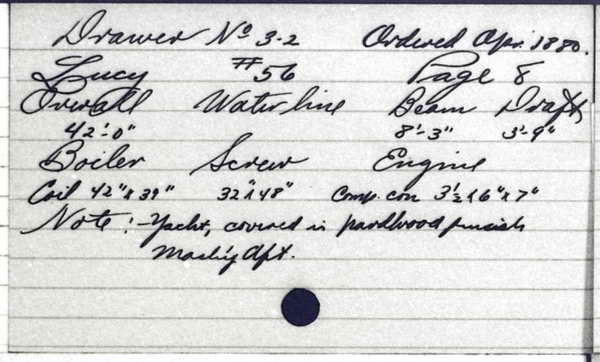 Drawer No 3-2 Ordered Apr. 1880.
Lucy #56 Page 8
Overall Waterline Beam Draft
42'-0" 8'-3" 3'-9"
Boiler Screw Engine
Coil 42" x 39" 32" x 48" Comp. con 3½ x 6" x 7"
Note: - Yacht, covered in hardwood finish
Mach'y Apt.